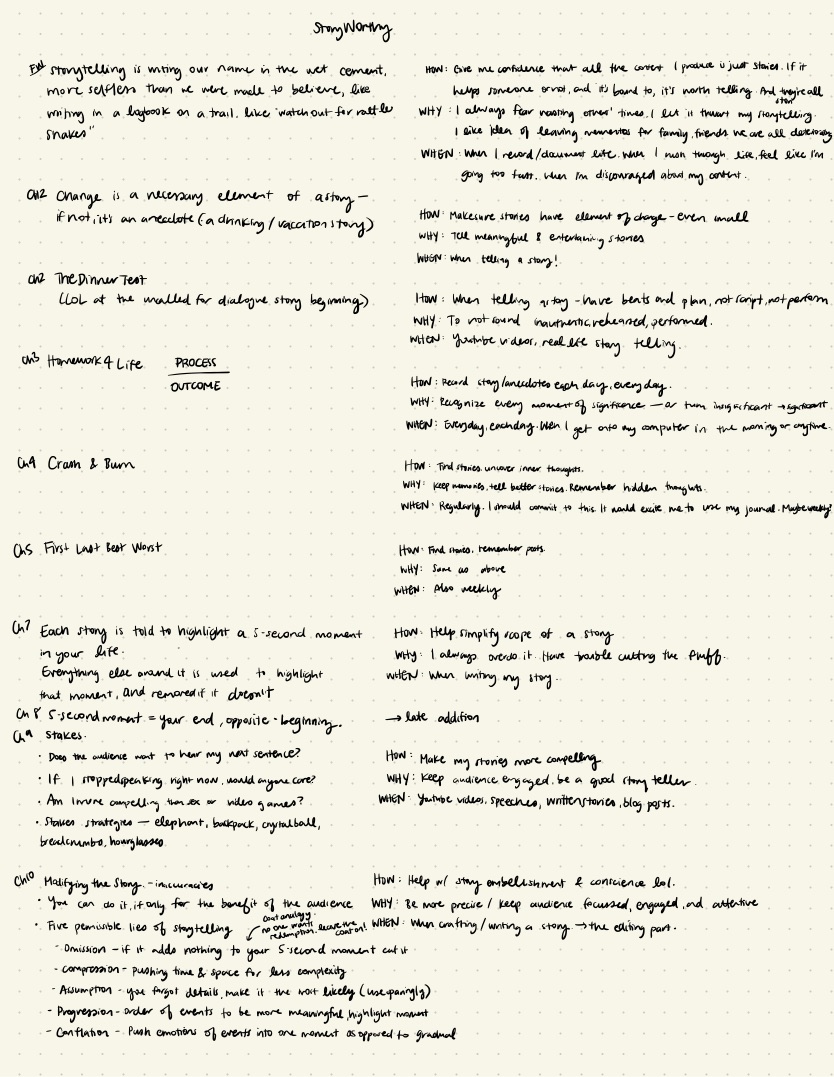 StoryWorthy
FW storytelling is writing our name in the wet cement,
more selfless than we were made to believe, like
writing in a logbook on a trail, like "watch out for rattle
snakes"
HOW: Give me confidence that all the content I produce is just stories. If it
helps someone or not, and it's bound to, it's worth telling. And they're all
WHY: I always fear wasting others' times. I let it thwart my storytelling.
I like idea of leaving mementos for family, friends we are all
WHEN: When I record/document life. When I rush through life, feel like I'm
going too fast. When I'm discouraged about my content.
Ch2 Change is a necessary element of a story —
if not, it's an anecdote (a drinking / vacation story)
HOW: Make sure stories have element of change - even small
WHY: Tell meaningful & entertaining stories
WHEN: When telling a story!
Ch2 The Dinner Test
(LOL at the uncalled for dialogue story beginning)
HOW: When telling a story - have beats and plan, not script, not perform
WHY: To not sound inauthentic, rehearsed, performed.
WHEN: Youtube videos, real life story telling.
Ch3 Homework 4 Life PROCESS
OUTCOME
HOW: Record story/anecdotes each day, every day.
WHY: Recognize every moment of significance — or turn insignificant → significant.
WHEN: Everyday, each day. When I get onto my computer in the morning or anytime.
Ch4 Crash & Burn
HOW: Find stories, uncover inner thoughts.
WHY: Keep memories, tell better stories. Remember hidden thoughts.
WHEN: Regularly. I should commit to this. It would excite me to use my journal. Maybe weekly?
Ch5 First Last Best Worst
HOW: Find stories, remember pasts.
WHY: Same as above
WHEN: Also weekly
Ch7 Each story is told to highlight a 5-second moment
in your life.
Everything else around it is used to highlight
that moment, and removed if it doesn't
HOW: Help simplify scope of a story
WHY: I always overdo it. Have trouble cutting the fluff.
WHEN: When writing my story.
Ch 8 5-second moment = your end, opposite - beginning. → late addition
Ch9 Stakes.
• Does the audience want to hear my next sentence?
• If I stopped speaking right now, would anyone care?
• Am I more compelling than sex or video games?
• Stakes strategies — elephant, backpack, crystal ball,
breadcrumbs, hourglasses
HOW: Make my stories more compelling
WHY: Keep audience engaged, be a good story teller.
WHEN: Youtube videos, speeches, written stories, blog posts.
Ch10 Modifying the Story. - inaccuracies
• You can do it, if only for the benefit of the audience
• Five permissible lies of storytelling
coat analogy.
no one wants
redemption. leave the
coat on!
- Omission - if it adds nothing to your 5-second moment cut it
- compression - pushing time & space for less complexity
- Assumption - you forgot details, make it the most likely (use sparingly)
- Progression - order of events to be more meaningful, highlight moment
- Conflation - Push emotions of events into one moment as opposed to gradual
HOW: Help w/ story embellishment & conscience lol.
WHY: Be more precise / keep audience focussed, engaged, and attentive
WHEN: When crafting / writing a story → the editing part.